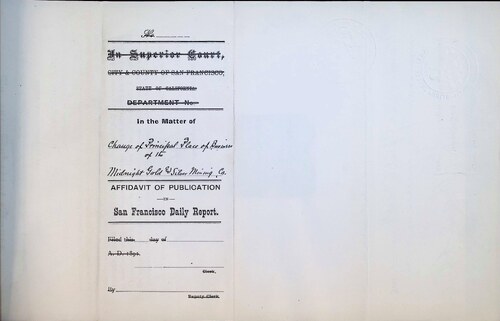 No.
In Superior Court,
CITY & COUNTY OF SAN FRANCISCO,
STATE OF CALIFORNIA.
DEPARTMENT No.
In the Matter of
Change of Principal Place of Business
of the
Midnight Gold & Silver Mining Co.
AFFIDAVIT OF PUBLICATION
—IN—
San Francisco Daily Report.
Filed this day of
A. D. 1891.
Clerk.
By
Deputy Clerk.